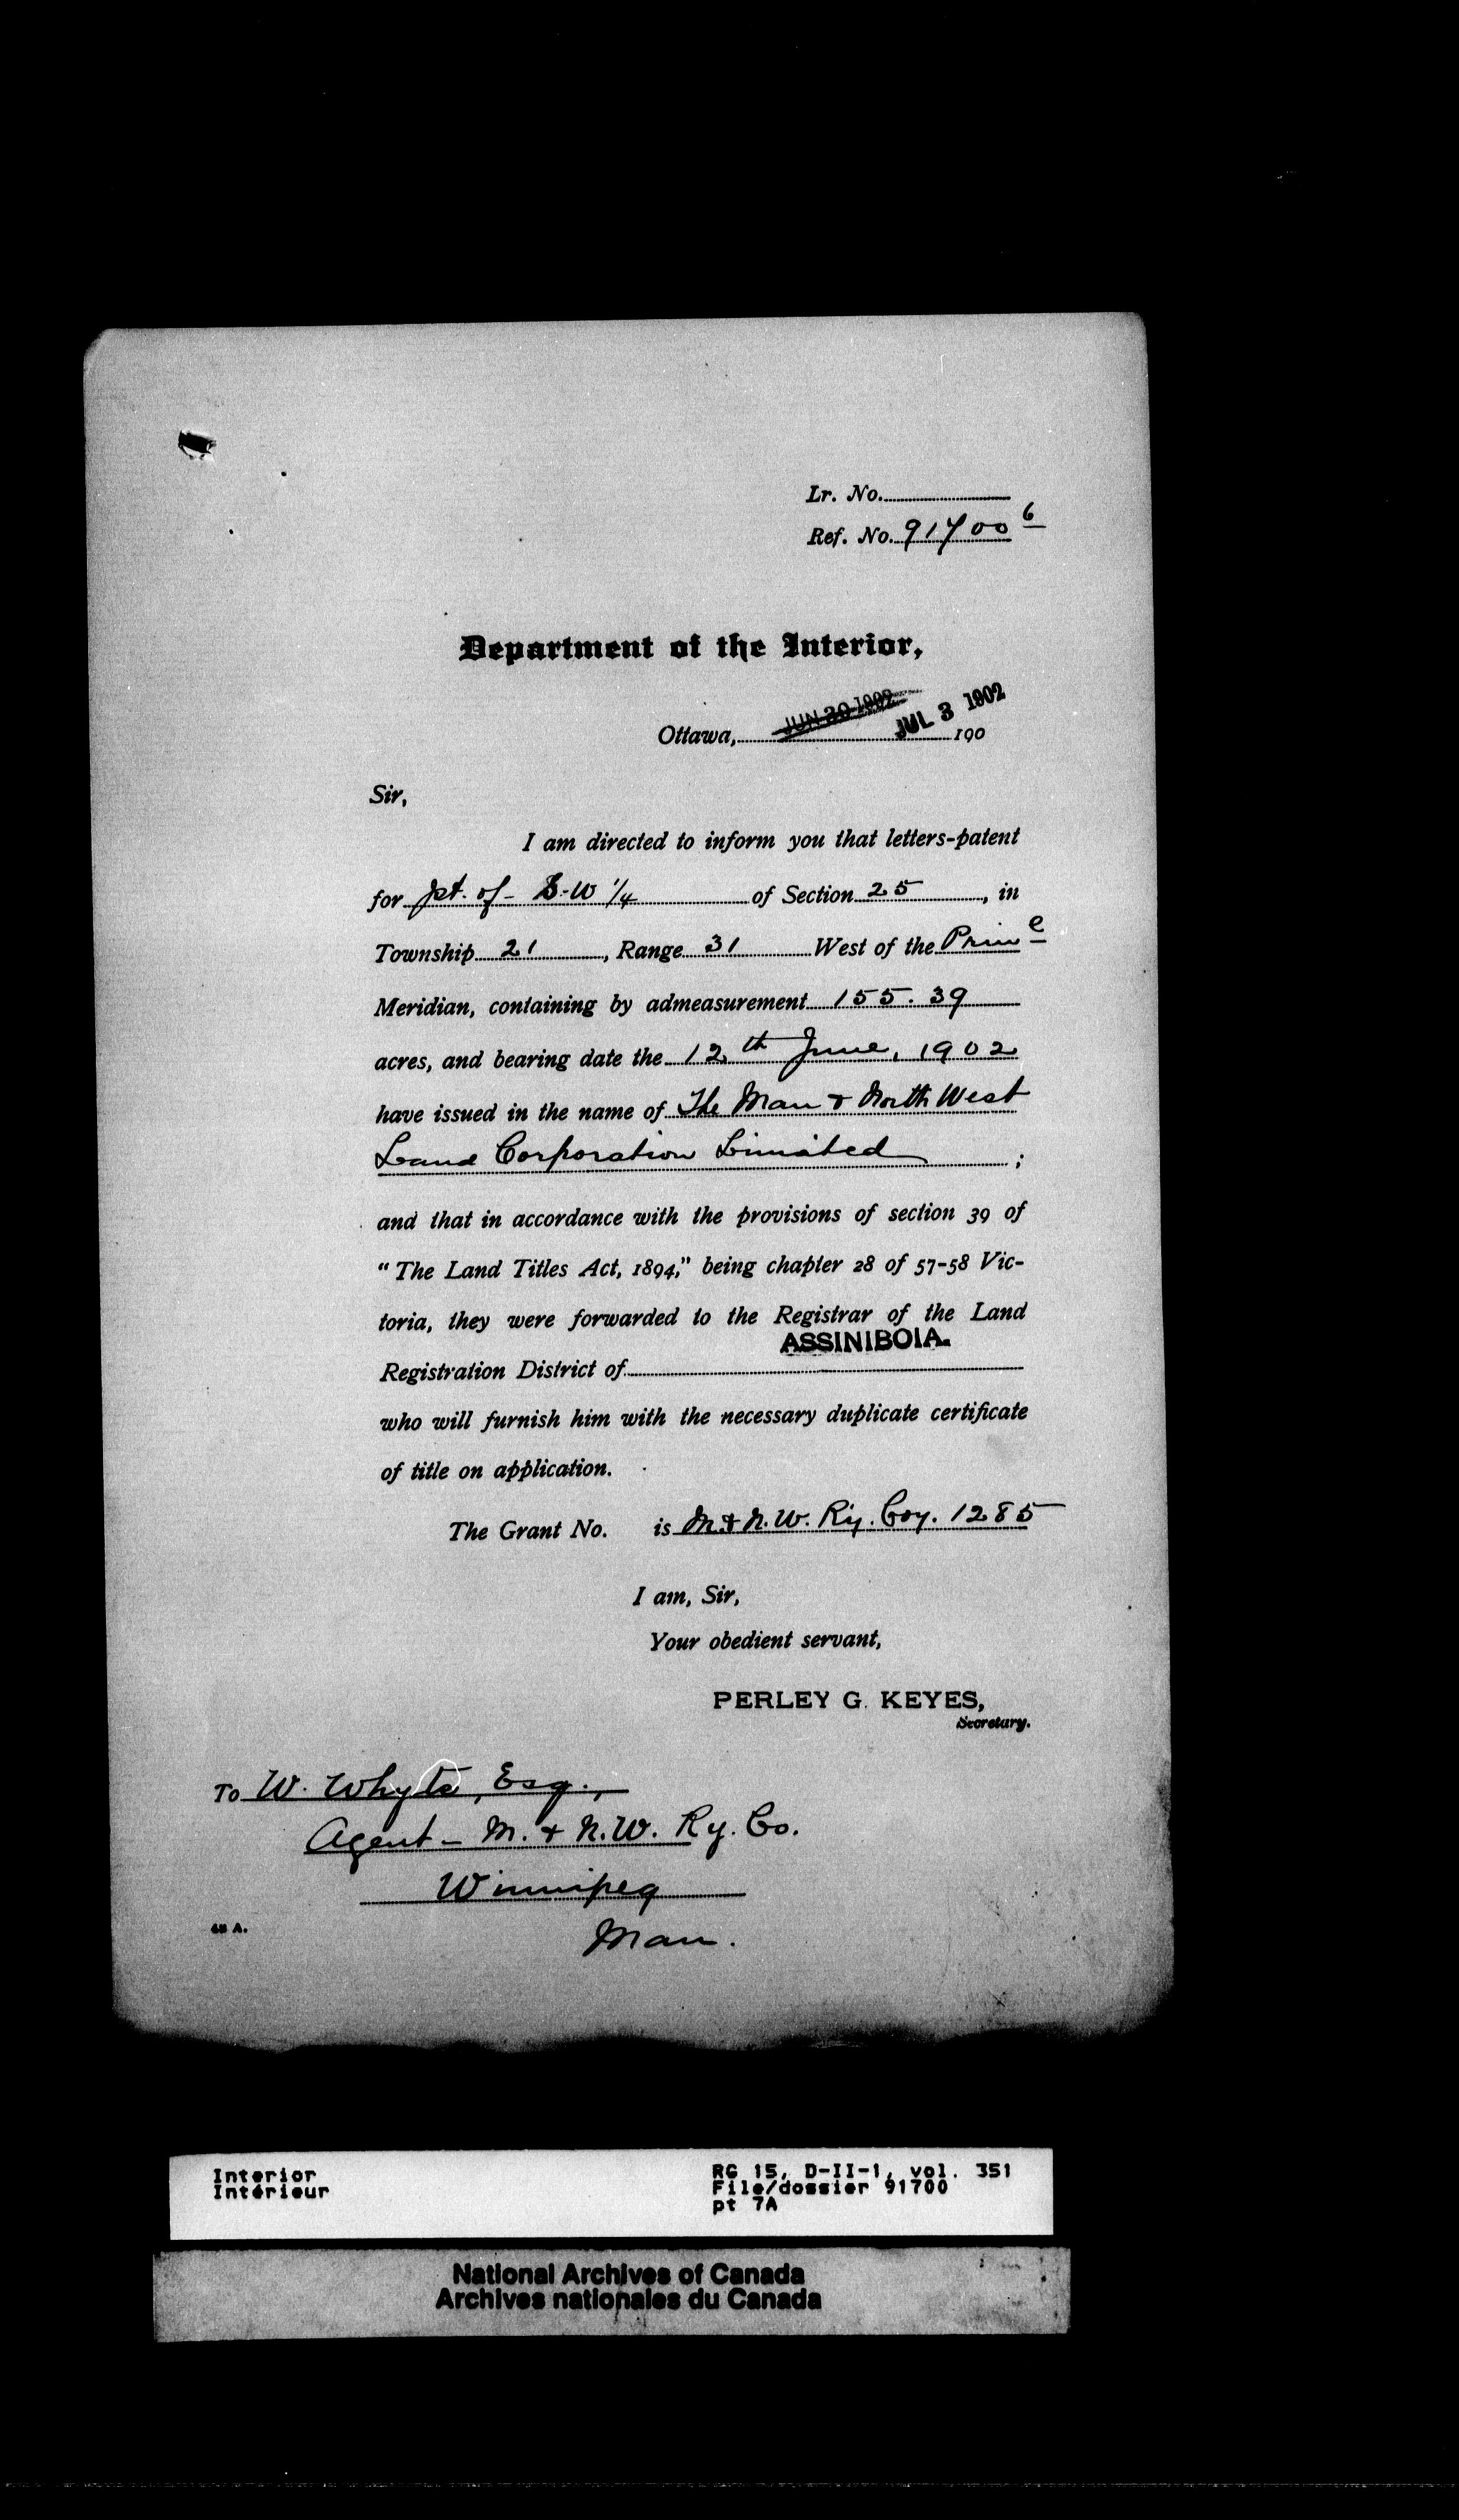 Lr. No.
Ref. No. 91700 6
Department of the Interior,
JUN 30 1902 JUL 3 1902
Ottawa, 190
Sir,
I am directed to inform you that letters-patent
for pt. of - S-W 1/4 of Section 25, in
Township 21, Range 31 West of the Prime
Meridian, containing by admeasurement 155.39
acres, and bearing date the 12th June, 1902
have issued in the name of The Man & North West
Land Corporation Limited ;
and that in accordance with the provisions of section 39 of
"The Land Titles Act, 1894," being chapter 28 of 57-58 Vic-
toria, they were forwarded to the Registrar of the Land
ASSINIBOIA.
Registration District of
who will furnish him with the necessary duplicate certificate
of title on application.
The Grant No. is M. & N. W. Ry. Coy. 1285
I am, Sir,
Your obedient servant,
PERLEY G. KEYES,
Secretary.
To W. Whyte, Esq.,
Agent - M. & N.W. Ry. Co.
Winnipeg
Man.
Interior
Intérieur
RG 15, D-II-1, vol. 351
File/dossier 91700
pt 7A
National Archives of Canada
Archives nationales du Canada